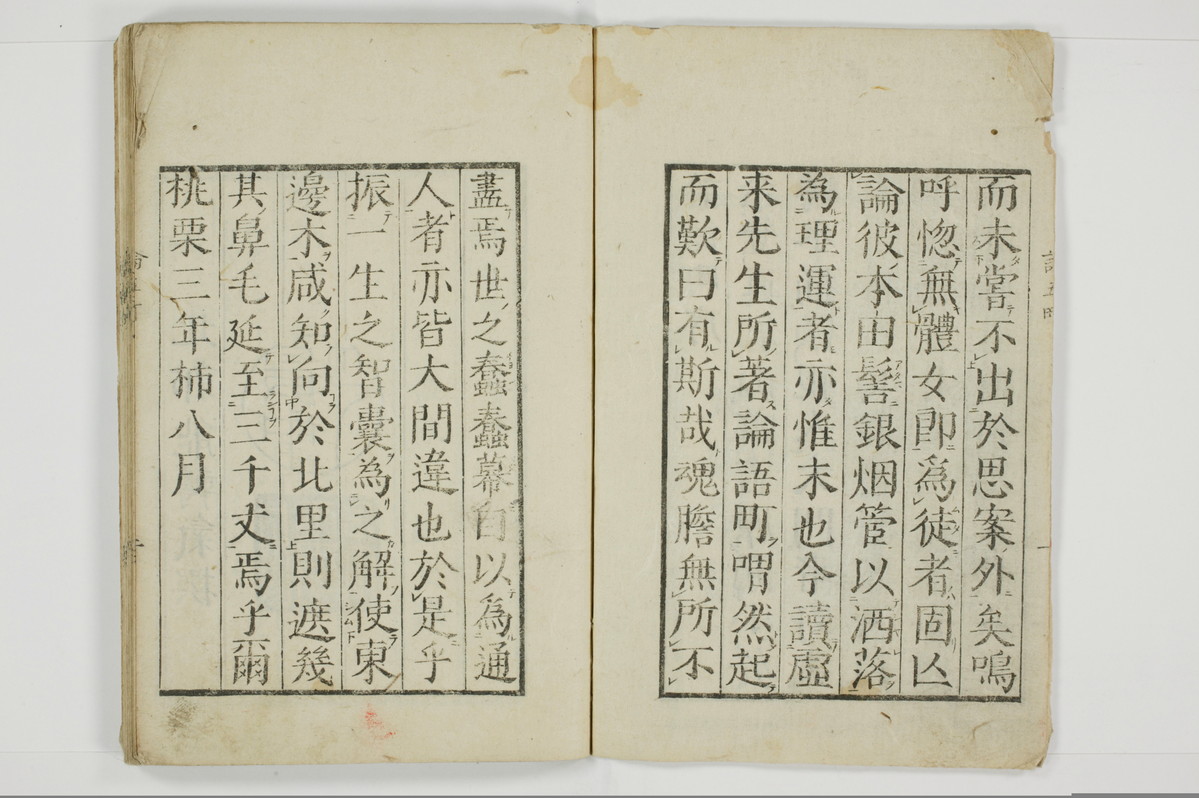 而未嘗不出於思案外矣嗚
呼惚無體女即為徒者固亾
論彼本田髻銀烟管以洒落
為理運者亦惟末也今讀虛
来先生所著論語町喟然起
而歎曰有斯哉魂膽無所不
盡焉世之蠢蠢幕白以為通
人者亦皆大間違也於是乎
振一生之智囊為之解使東
邊木咸知向於北里則遮幾
其鼻毛延至三千丈焉乎爾
桃栗三年柿八月